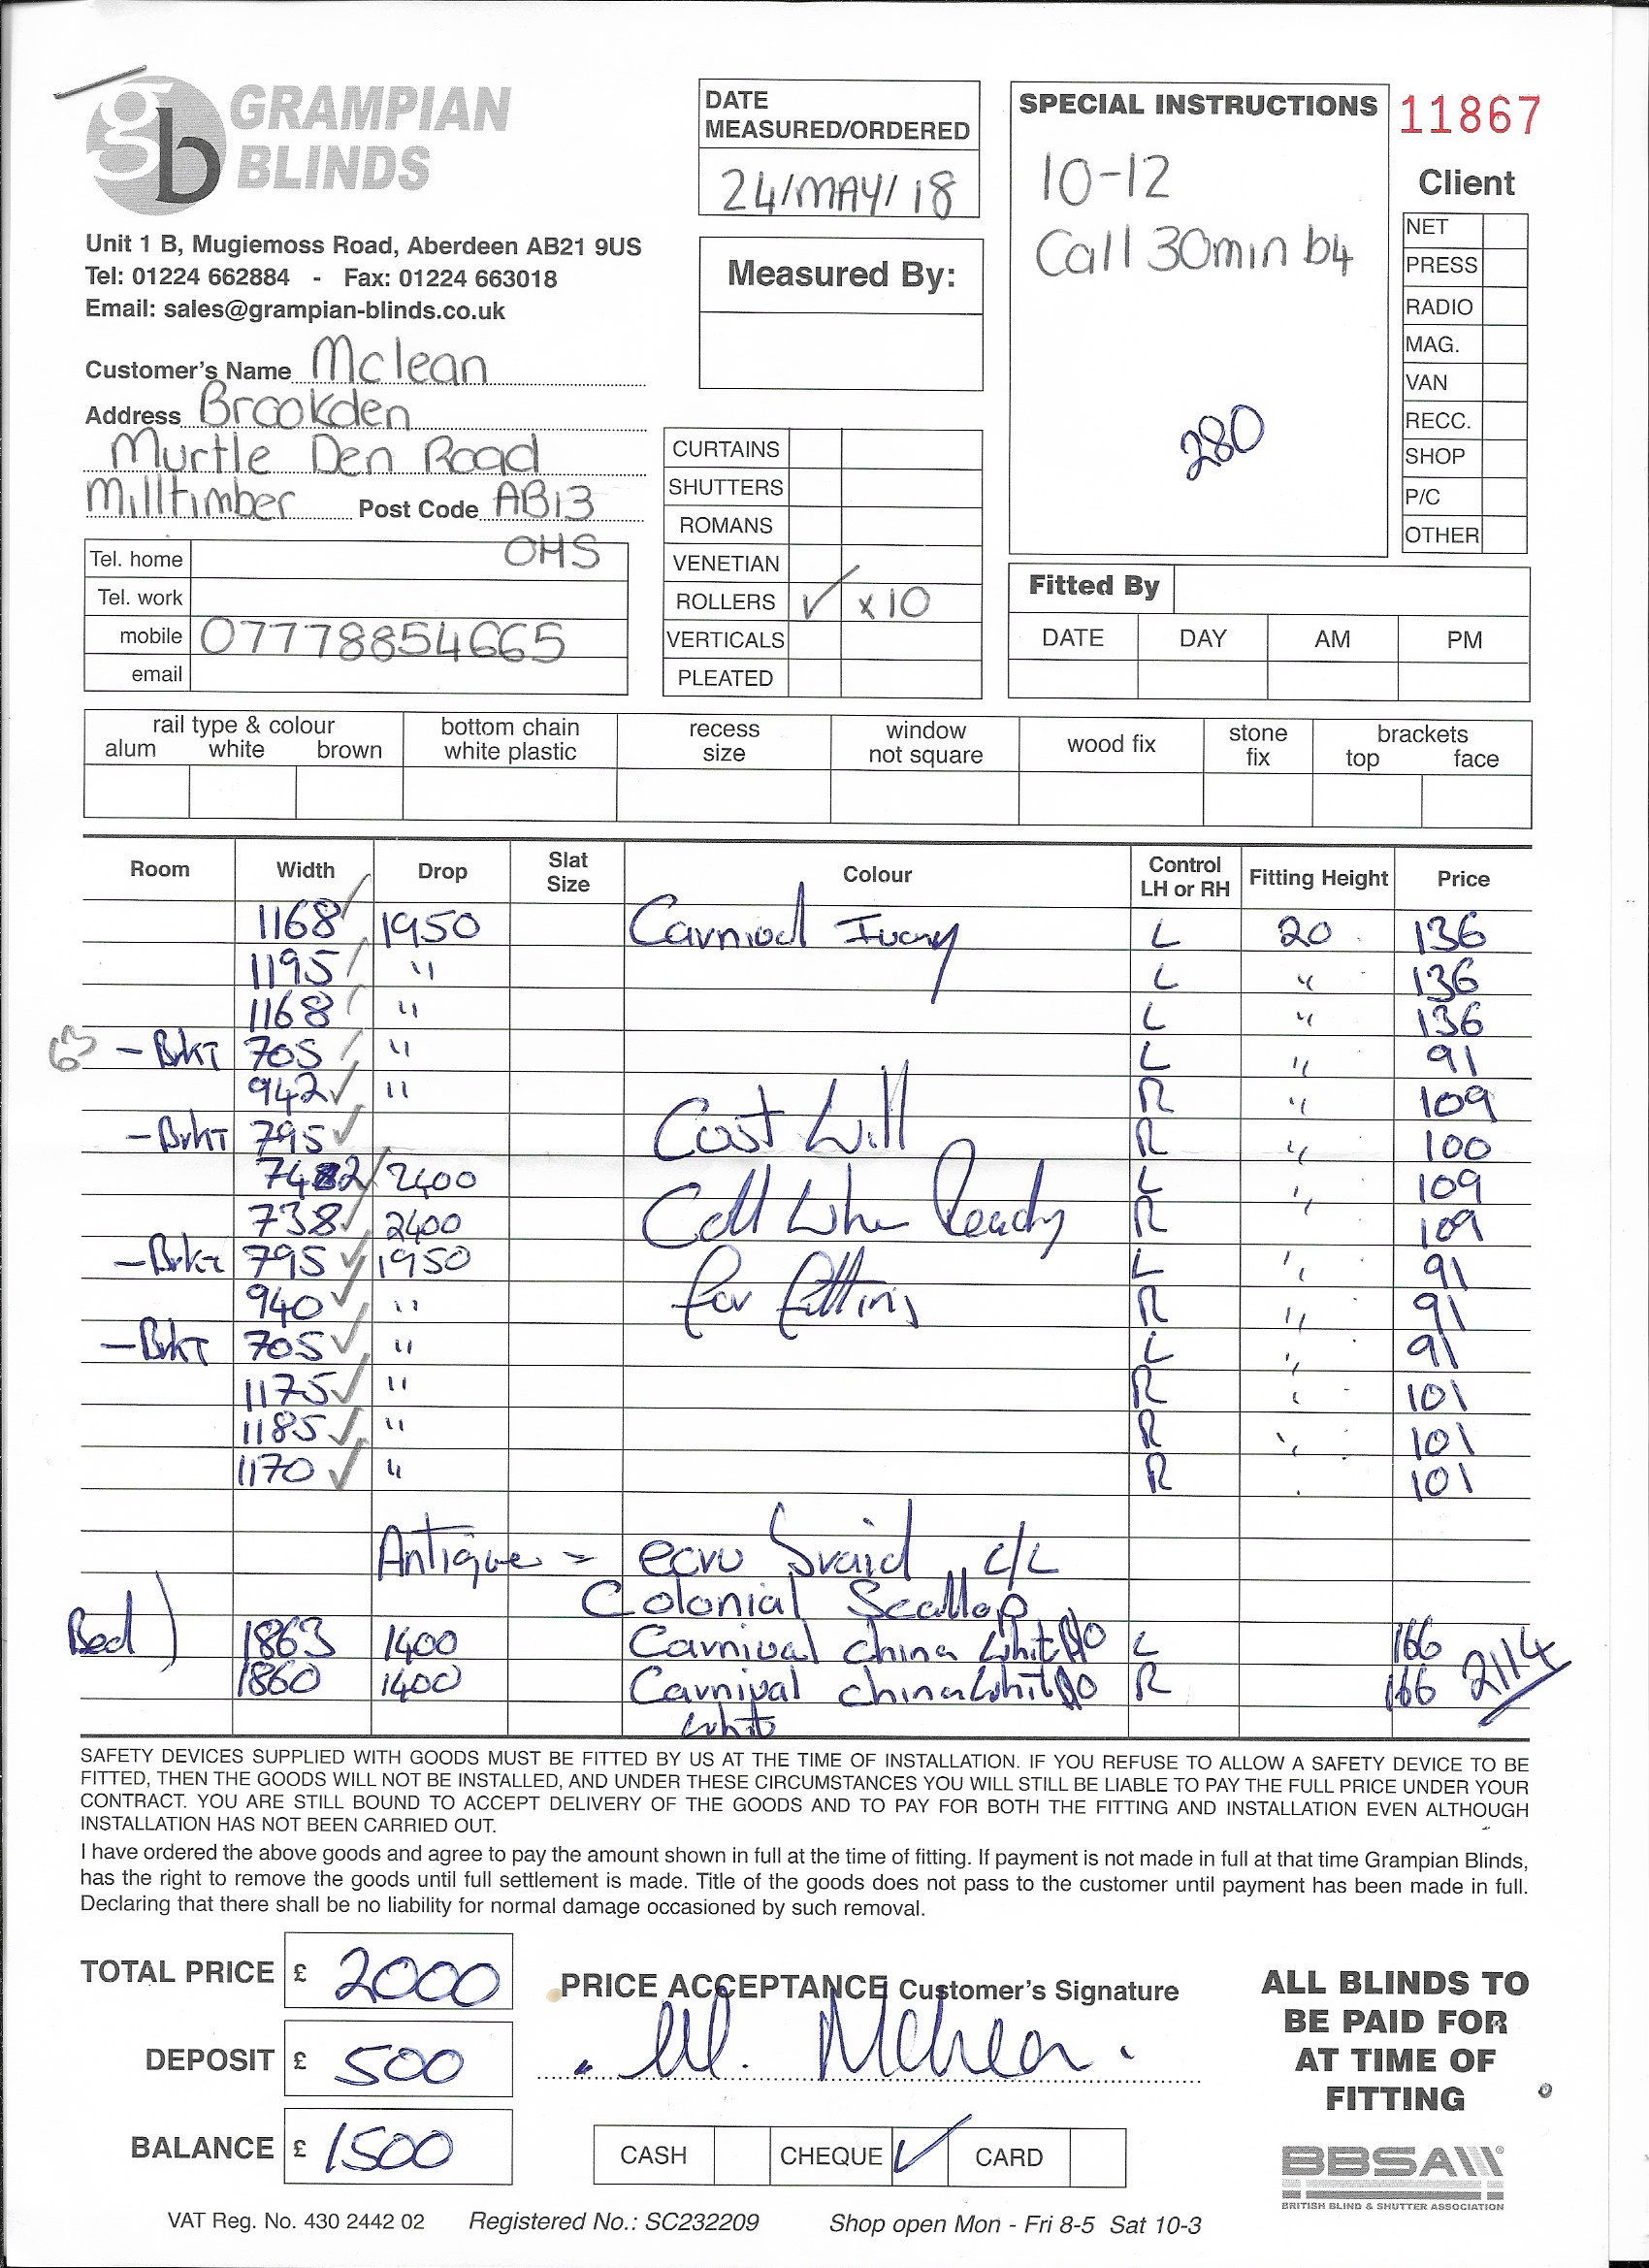 gb GRAMPIAN BLINDS
Unit 1 B, Mugiemoss Road, Aberdeen AB21 9US
Tel: 01224 662884 - Fax: 01224 663018
Email: sales@grampian-blinds.co.uk
Customer's Name Mclean
Address Brookden
Murtle Den Road
Milltimber Post Code AB13
OHS
Tel. home
Tel. work
mobile 07778854665
email
DATE
MEASURED/ORDERED
24/MAY/18
Measured By:
CURTAINS
SHUTTERS
ROMANS
VENETIAN
ROLLERS ✓ x10
VERTICALS
PLEATED
SPECIAL INSTRUCTIONS
10-12
Call 30min b4
280
11867
Client
NET
PRESS
RADIO
MAG.
VAN
RECC.
SHOP
P/C
OTHER
Fitted By
DATE DAY AM PM
rail type & colour
alum white brown
bottom chain
white plastic
recess
size
window
not square
wood fix
stone
fix
brackets
top face
Room Width Drop Slat Size Colour Control LH or RH Fitting Height Price
1168 ✓ 1950 Ivory L 20 136
1195 ✓ " L " 136
1168 ✓ " L " 136
- BrkT 705 ✓ " L " 91
942 ✓ " R " 109
- BrkT 795 ✓ Cust Will R " 100
742 ✓ 2400 Call When Ready L " 109
738 ✓ 2400 R 109
- Brkt 795 ✓ 1950 for fitting L " 91
940 ✓ " R " 91
- BrkT 705 ✓ " L " 91
1175 ✓ " R " 101
1185 ✓ " R " 101
1170 ✓ " R 101
Antique = ecru Braid c/c
Colonial Scallop
Bed) 1863 1400 Carnival China Whit BO L 166
1860 1400 Carnival China Whit BO R 166 2114
White
SAFETY DEVICES SUPPLIED WITH GOODS MUST BE FITTED BY US AT THE TIME OF INSTALLATION. IF YOU REFUSE TO ALLOW A SAFETY DEVICE TO BE
FITTED, THEN THE GOODS WILL NOT BE INSTALLED, AND UNDER THESE CIRCUMSTANCES YOU WILL STILL BE LIABLE TO PAY THE FULL PRICE UNDER YOUR
CONTRACT. YOU ARE STILL BOUND TO ACCEPT DELIVERY OF THE GOODS AND TO PAY FOR BOTH THE FITTING AND INSTALLATION EVEN ALTHOUGH
INSTALLATION HAS NOT BEEN CARRIED OUT.
I have ordered the above goods and agree to pay the amount shown in full at the time of fitting. If payment is not made in full at that time Grampian Blinds,
has the right to remove the goods until full settlement is made. Title of the goods does not pass to the customer until payment has been made in full.
Declaring that there shall be no liability for normal damage occasioned by such removal.
TOTAL PRICE £ 2000
DEPOSIT £ 500
BALANCE £ 1500
PRICE ACCEPTANCE Customer's Signature
M. McLean.
CASH CHEQUE ✓ CARD
ALL BLINDS TO
BE PAID FOR
AT TIME OF
FITTING
BBSA
BRITISH BLIND & SHUTTER ASSOCIATION
VAT Reg. No. 430 2442 02 Registered No.: SC232209 Shop open Mon - Fri 8-5 Sat 10-3